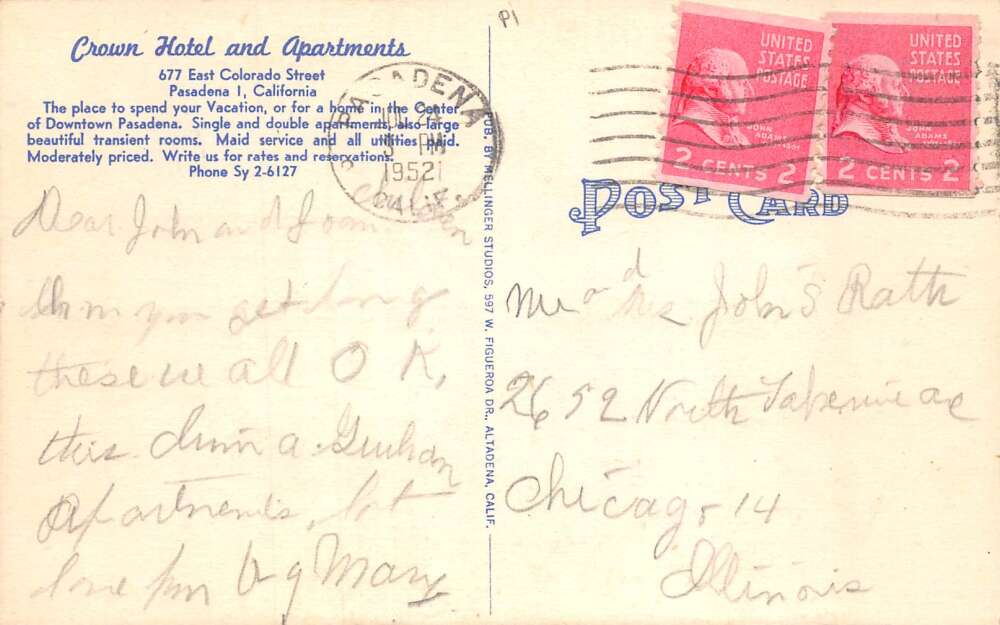 Crown Hotel and Apartments
677 East Colorado Street
Pasadena 1, California
The place to spend your Vacation, or for a home in the Center
of Downtown Pasadena. Single and double apartments, also large
beautiful transient rooms. Maid service and all utilities paid.
Moderately priced. Write us for rates and reservations.
Phone Sy 2-6127
PASADENA
PM
1952
CALIF.
P1
UNITED
STATES
POSTAGE
JOHN
ADAMS
2 CENTS 2
UNITED
STATES
POSTAGE
JOHN
ADAMS
2 CENTS 2
POST CARD
PUB. BY MELLINGER STUDIOS, 597 W. FIGUEROA DR., ALTADENA, CALIF.
Dear John and Joan
you
these we all O K,
this a
Apartments, lot
love Mary
Mr and Mrs John S Rath
2652 North
Chicago 14
Illinois